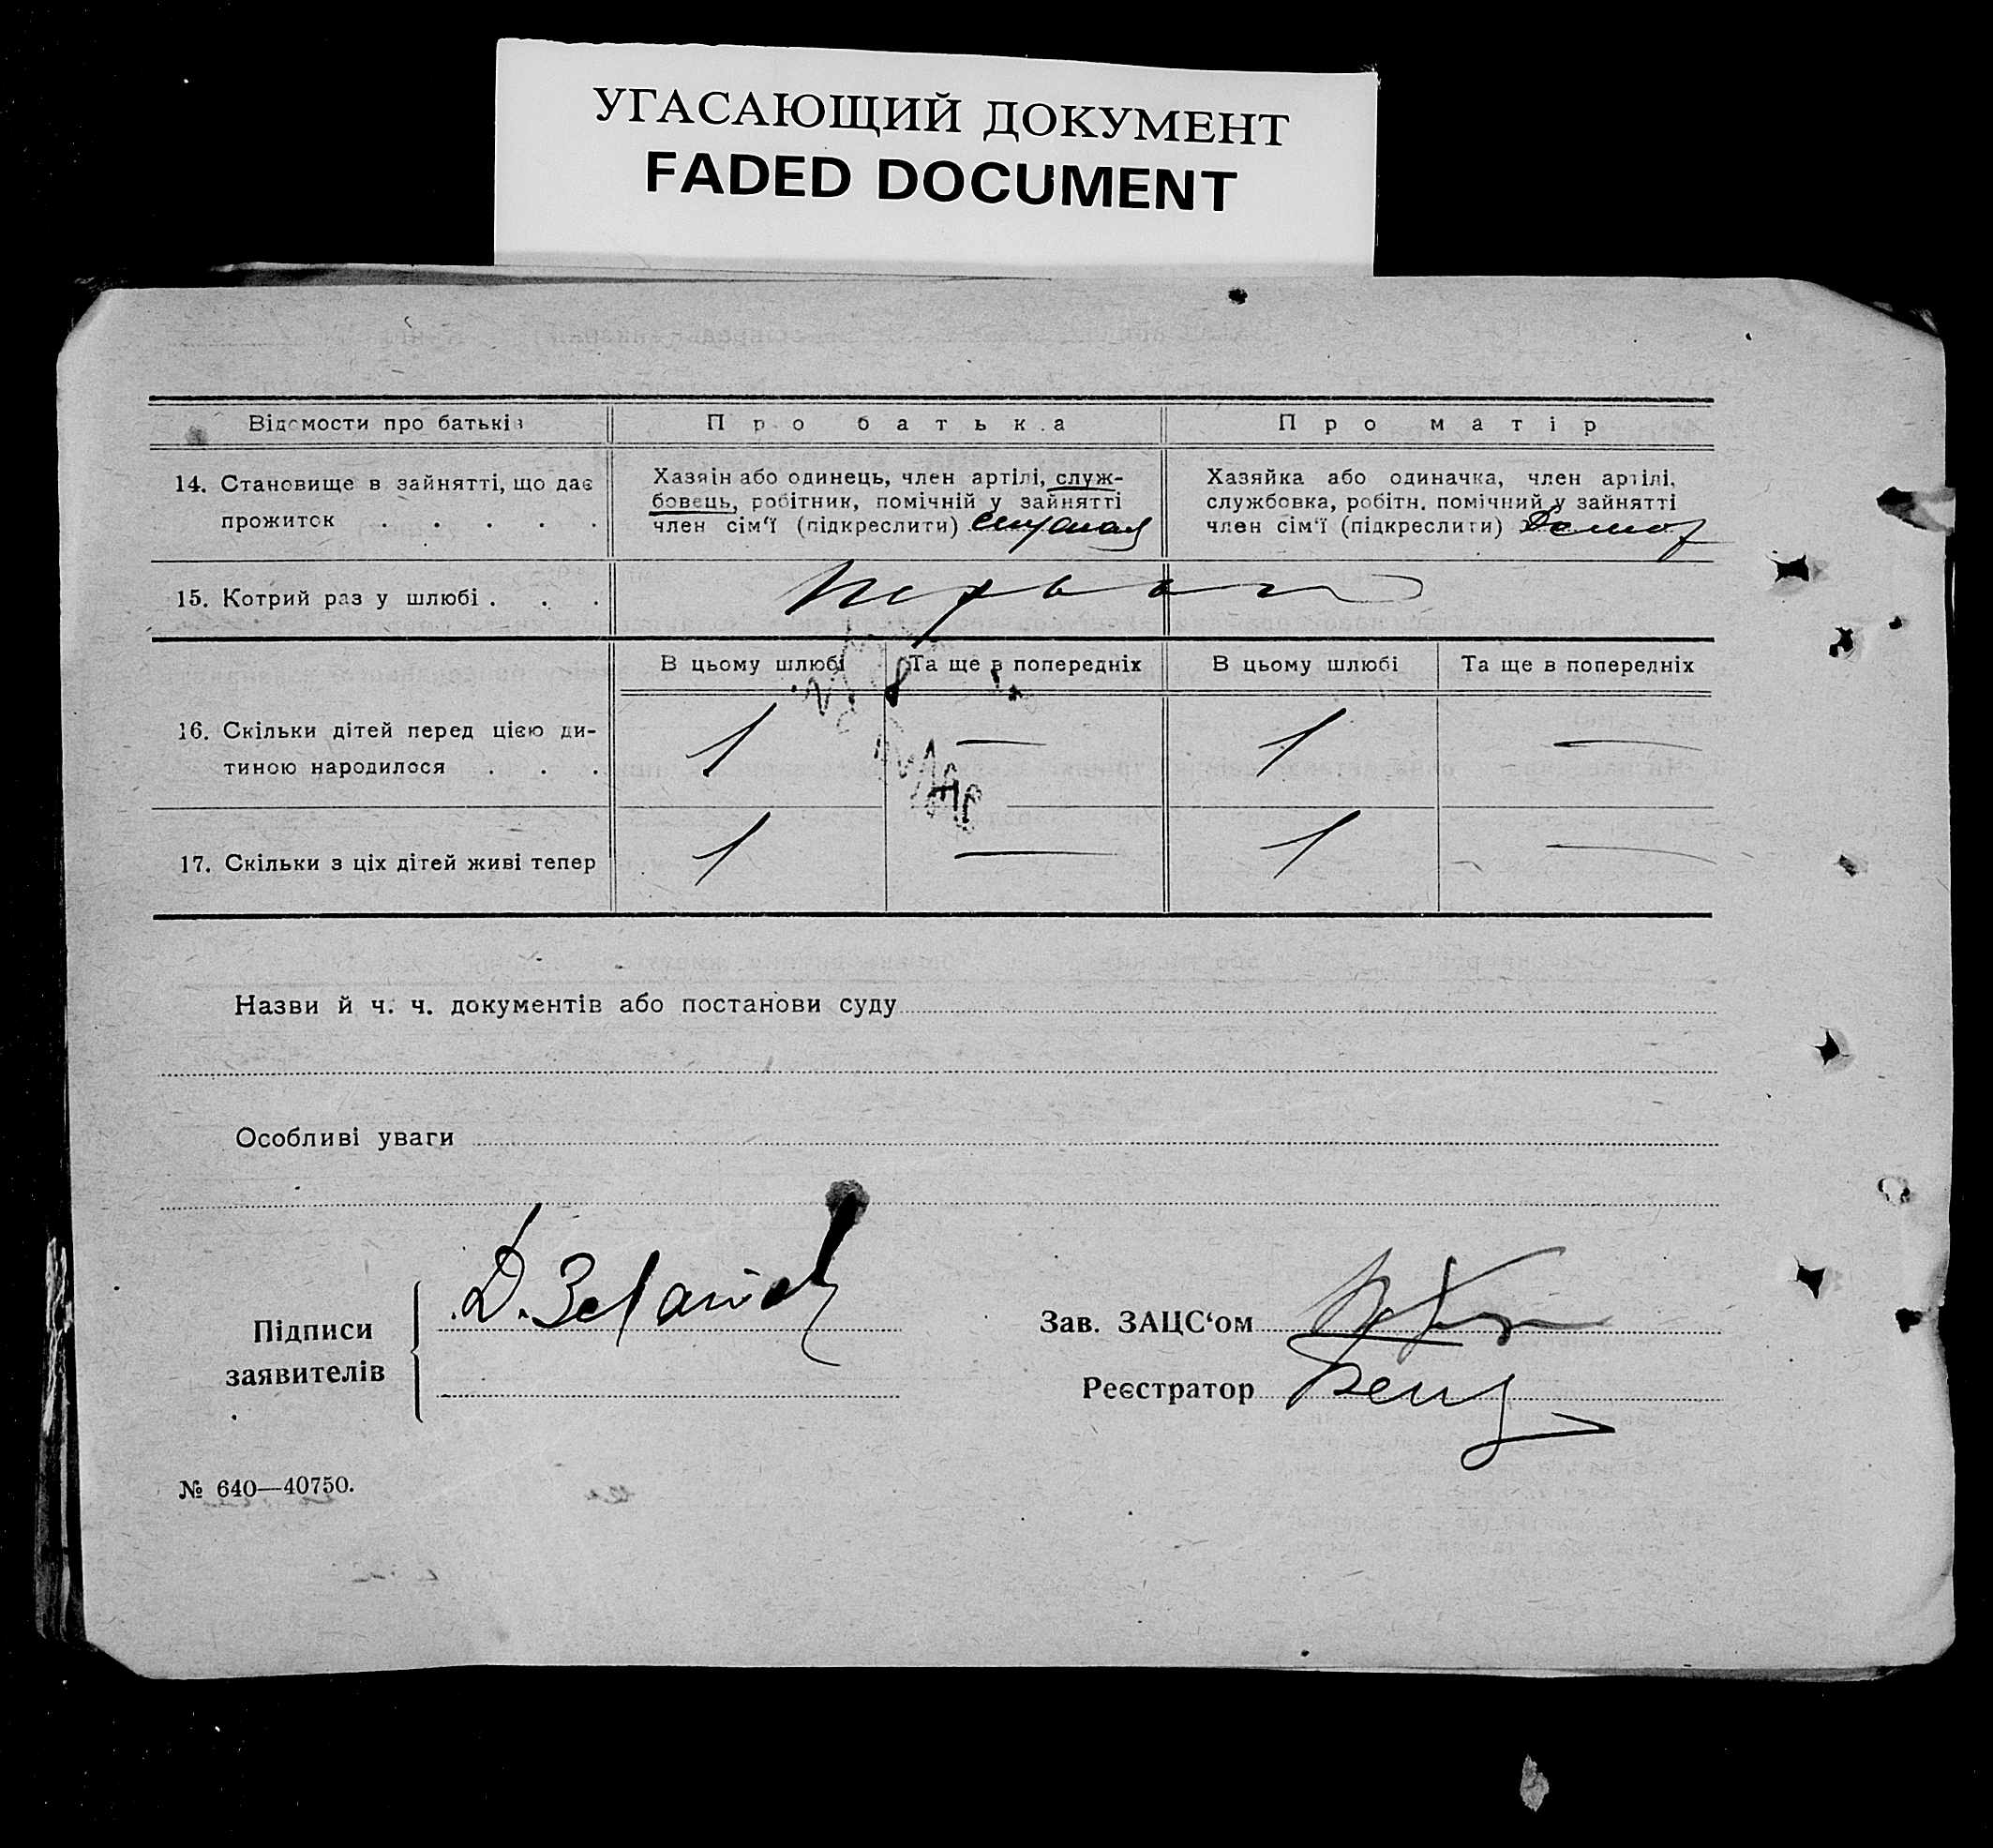 УГАСАЮЩИЙ ДОКУМЕНТ
FADED DOCUMENT
Відомости про батьків
Про батька
Про матір
14. Становище в зайнятті, що дає
прожиток . . . . .
Хазяїн або одинець, член артілі, служ-
бовець, робітник, помічній у зайнятті
член сім'ї (підкреслити)
Хазяйка або одиначка, член артілі,
службовка, робітн. помічний у зайнятті
член сім'ї (підкреслити)
15. Котрий раз у шлюбі . . .
В цьому шлюбі
Та ще в попередніх
В цьому шлюбі
Та ще в попередніх
16. Скільки дітей перед цією ди-
тиною народилося . . .
1 — 1 —
17. Скільки з ціх дітей живі тепер
1 — 1 —
Назви й ч. ч. документів або постанови суду
Особливі уваги
Підписи
заявителів
Д.
Зав. ЗАЦС‘ом
Реєстратор
№ 640—40750.